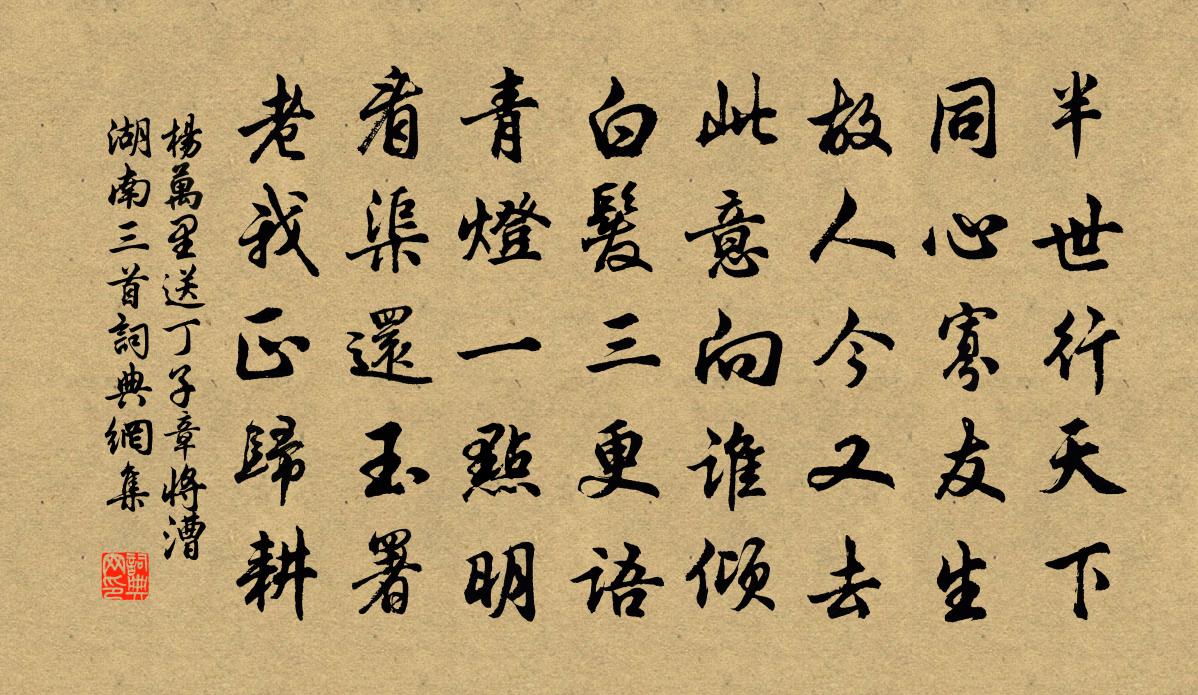 半世行天下
同心寡友生
故人今又去
此意向谁傾
白髮三更语
青燈一點明
看渠還玉署
老我正歸耕
楊萬里送丁子章將漕
湖南三首詞典網集
詞典网印